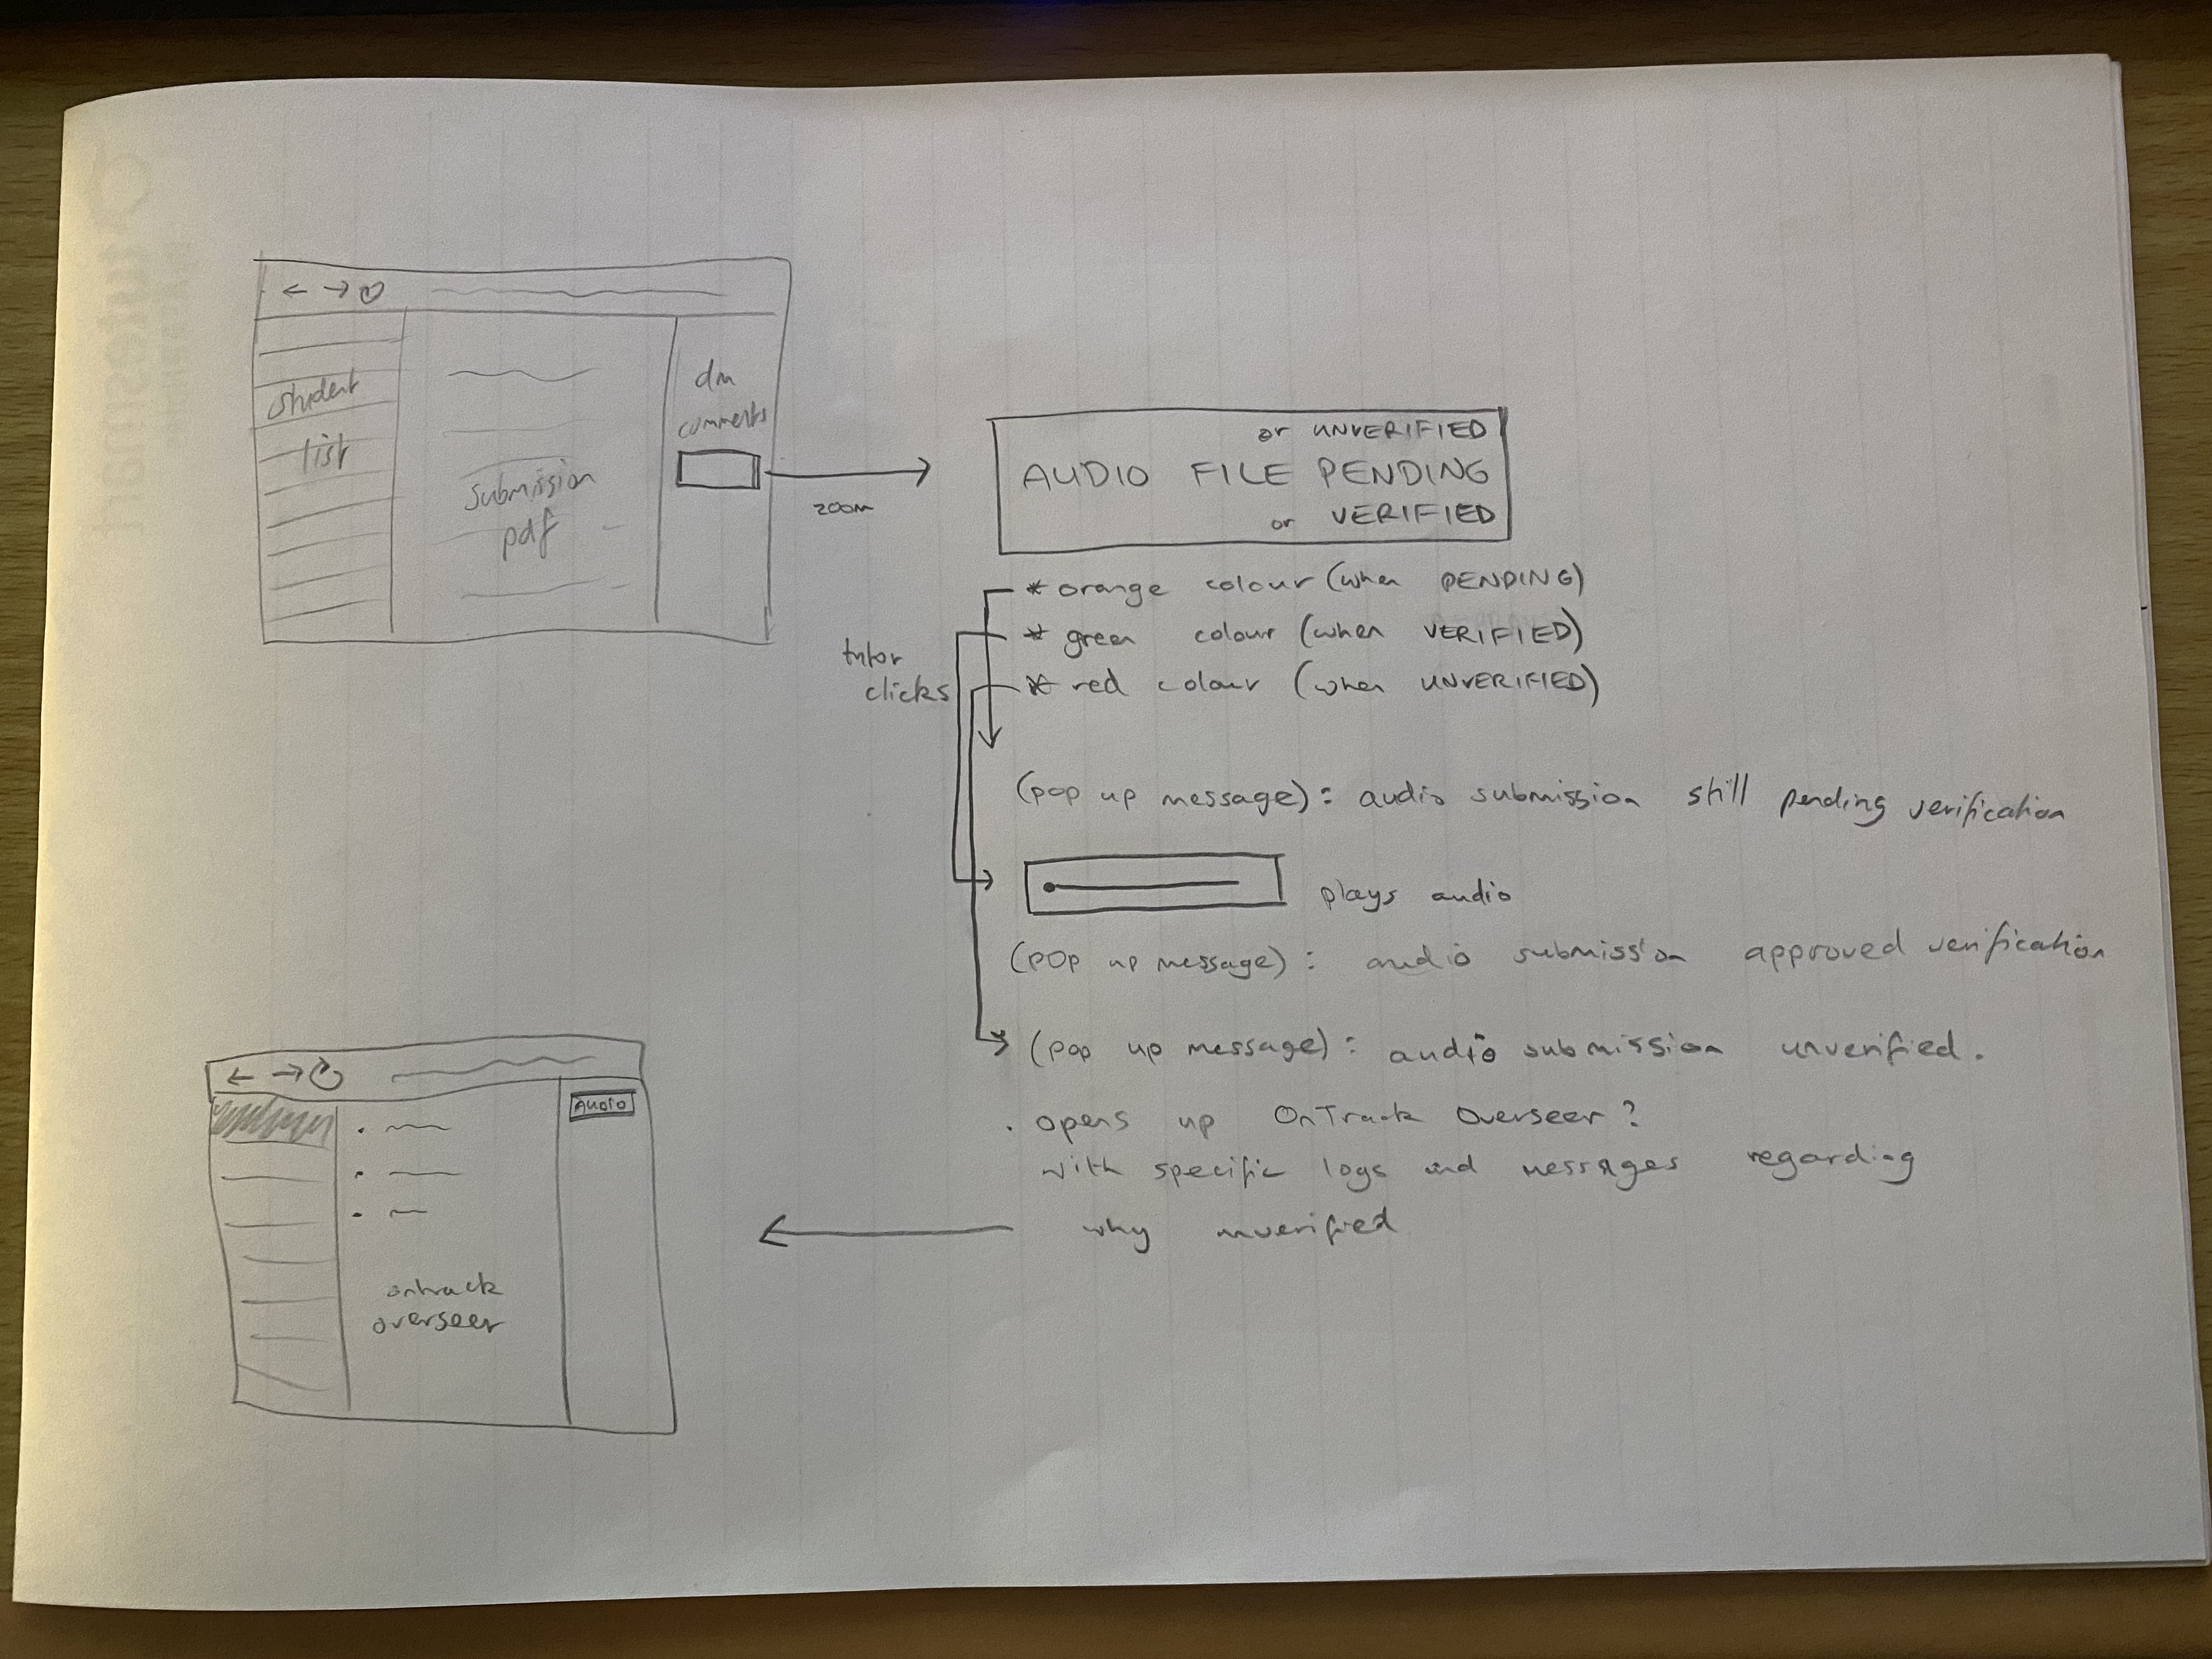 student
list
submission
pdf
dm
comments
zoom
or UNVERIFIED
AUDIO FILE PENDING
or VERIFIED
* orange colour (when PENDING)
* green colour (when VERIFIED)
* red colour (when UNVERIFIED)
tutor
clicks
(pop up message) : audio submission still pending verification
plays audio
(pop up message) : audio submission approved verification
(pop up message) : audio submission unverified.
. opens up OnTrack Overseer ?
with specific logs and messages regarding
why unverified
AUDIO
ontrack
overseer